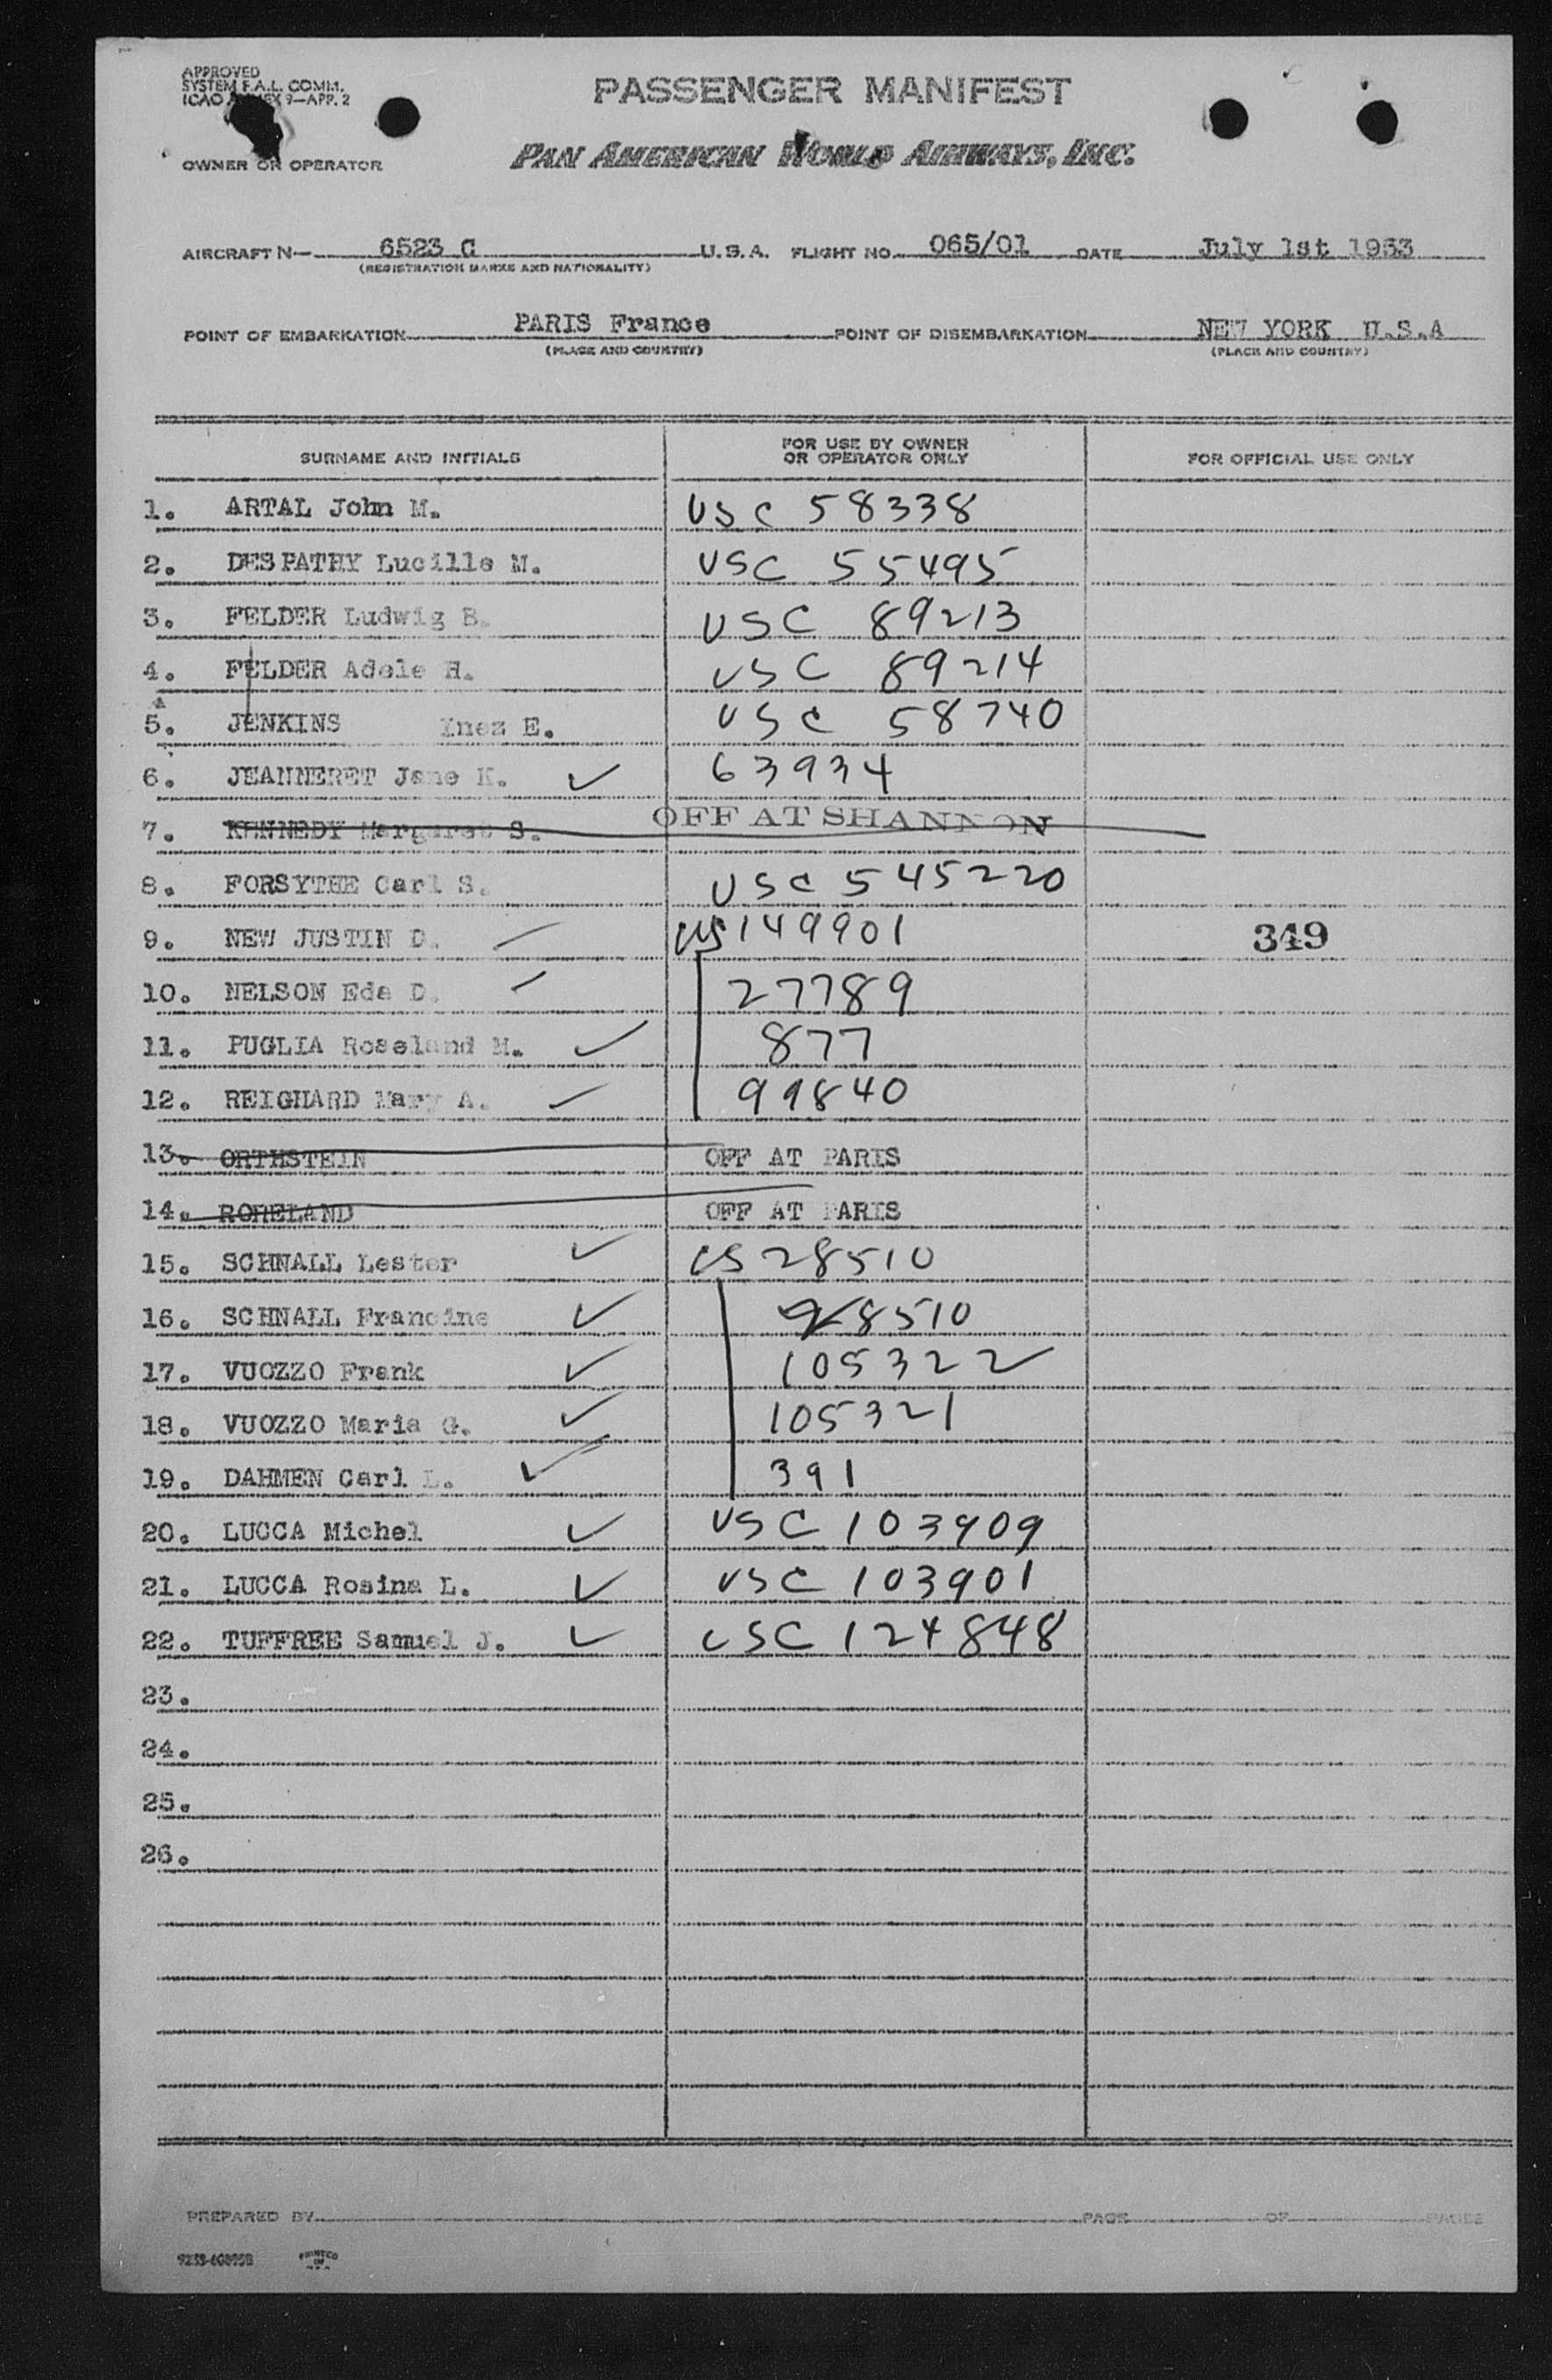 APPROVED
SYSTEM F.A.L. COMM.
ICAO 9—APP. 2
PASSENGER MANIFEST
PAN AMERICAN WORLD AIRWAYS, INC.
OWNER OR OPERATOR
AIRCRAFT N— 6523 C U.S.A. FLIGHT NO. 065/01 DATE July 1st 1953
(REGISTRATION MARKS AND NATIONALITY)
POINT OF EMBARKATION PARIS France POINT OF DISEMBARKATION NEW YORK U.S.A
(PLACE AND COUNTRY) (PLACE AND COUNTRY)
SURNAME AND INITIALS FOR USE BY OWNER OR OPERATOR ONLY FOR OFFICIAL USE ONLY
1. ARTAL John M. USC 58338
2. DESPATHY Lucille M. USC 55495
3. FELDER Ludwig B. USC 89213
4. FELDER Adele H. USC 89214
5. JENKINS Ynez E. USC 58740
6. JEANNERET Jane K. ✓ 63934
7. KENNEDY Margaret S. OFF AT SHANNON
8. FORSYTHE Carl S. USC 545220
9. NEW JUSTIN D. US 149901 349
10. NELSON Eda D. 27789
11. PUGLIA Roseland M. ✓ 877
12. REIGHARD Mary A. 99840
13. ORTHSTEIN OFF AT PARIS
14. RORELAND OFF AT PARIS
15. SCHNALL Lester ✓ US 28510
16. SCHNALL Francine ✓ 28510
17. VUOZZO Frank ✓ 105322
18. VUOZZO Maria G. ✓ 105321
19. DAHMEN Carl L. ✓ 391
20. LUCCA Michel ✓ USC 103909
21. LUCCA Rosina L. ✓ USC 103901
22. TUFFREE Samuel J. ✓ USC 124848
23.
24.
25.
26.
PREPARED BY PAGE OF PAGES
PRINTED